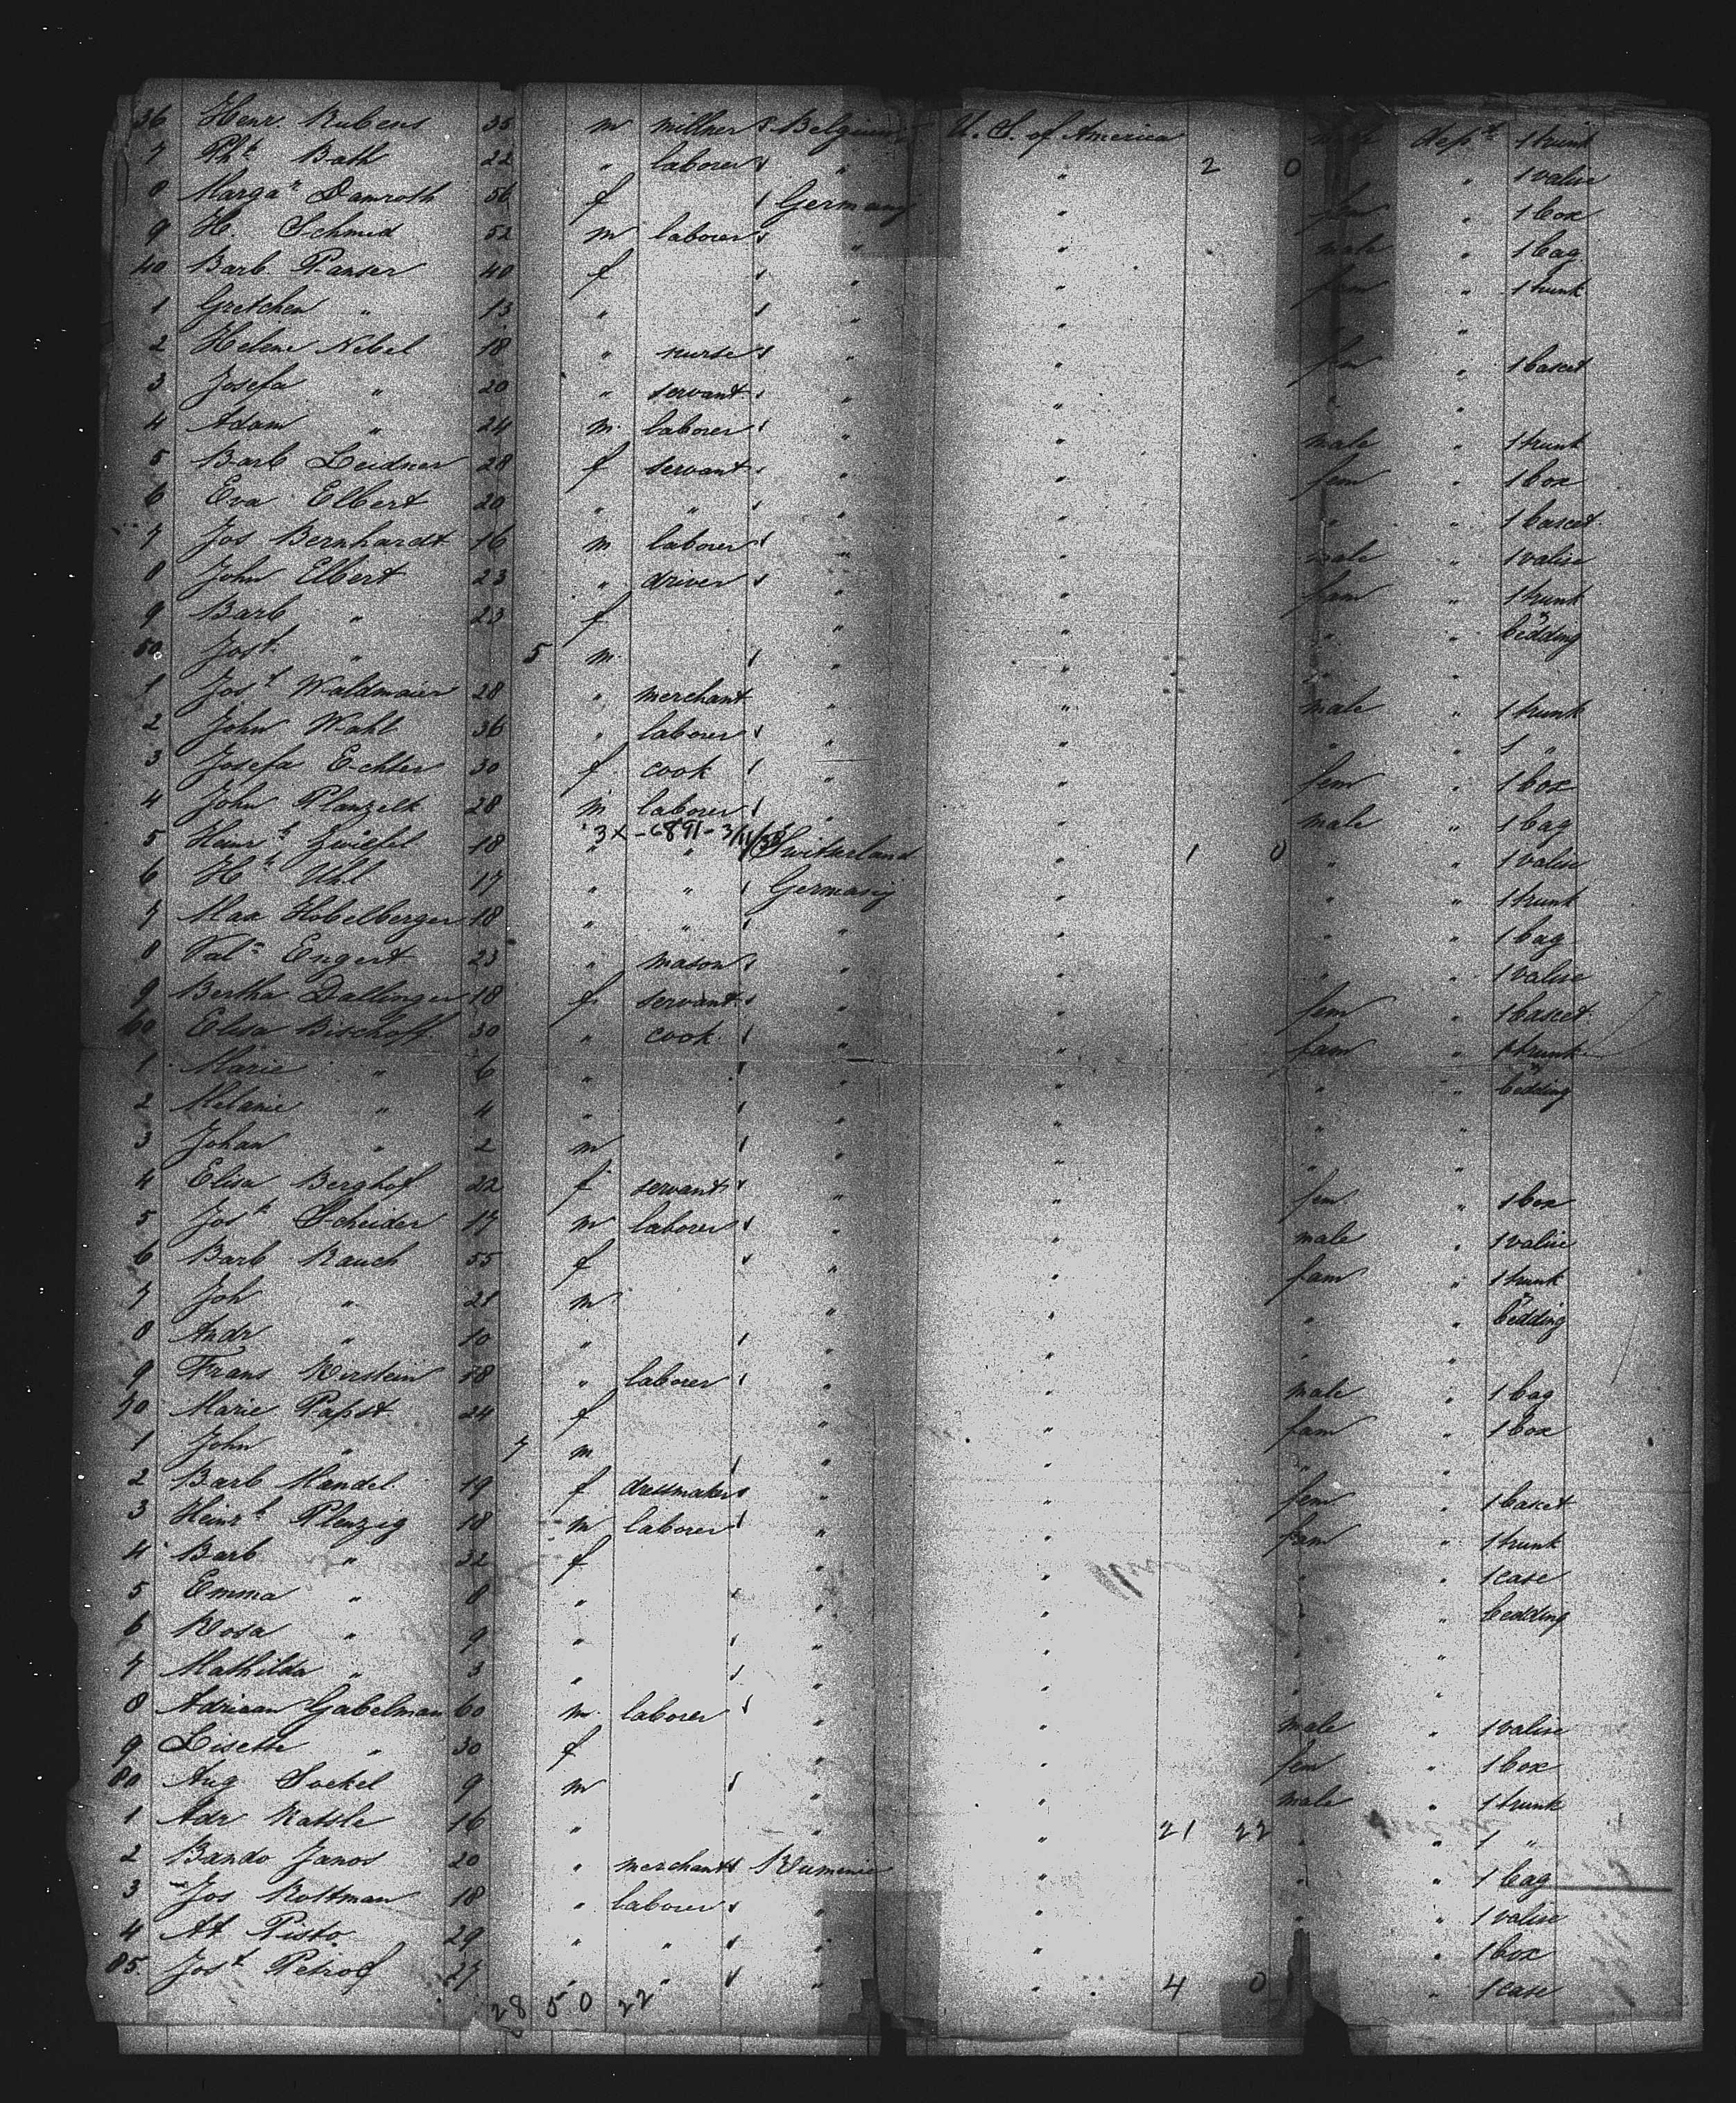 36 Henr. Rubens 35 m millner s Belgium U. S. of America male dept 1 trunk
7 Pht Bath 22 " laborer s " " 2 0 " 1 valise
8 Margar Damroth 56 f s Germany " fem " 1 box
9 H. Schmid 52 m laborer s " " male " 1 bag
40 Barb. Panser 40 f s " " fem " 1 trunk
1 Gretchen " 13 " s " " "
2 Helene Nebel 18 " nurse s " " fem " 1 bascet
3 Josefa " 20 " servant s " " " "
4 Adam " 24 m. laborer s " " male " 1 trunk
5 Barb Leidner 28 f servant s " " fem " 1 box
6 Eva Elbert 20 " " s " " " " 1 bascet
7 Jos Bernhardt 16 m laborer s " " male " 1 valise
8 John Elbert 23 " driver s " " fam " 1 trunk
9 Barb " 23 f " " " " bedding
50 Jost. " 5 m. s " " " "
1 Jost Waldmaier 28 " merchant " " male " 1 trunk
2 John Wahl 36 " laborer s " " " " 1 "
3 Josefa Echter 30 f. cook s " " fem " 1 box
4 John Planzelt 28 m laborer s " " male " 1 bag
3X-6891-3/11/38
5 Heinrh Zwiefel 18 " " Switserland " 1 0 " " 1 valise
6 Hh Uhl 17 " " s Germany " " " 1 trunk
7 Max Hobelberger 18 " " s " " " " 1 bag
8 Val= Engert 23 " mason s " " " " 1 valise
9 Bertha Dallinger 18 f. servant s " " fem " 1 bascet
60 Elisa Bischoff 30 " cook s " " fam " 1 trunk
1 Marie " 6 " s " " " " bedding
2 Melanie " 4 " s " " " "
3 Johan " 2 m s " " " "
4 Elisa Berghof 22 f servant s " " fem " 1 box
5 Josh Scheider 17 m laborer s " " male " 1 valise
6 Barb Rauch 55 f s " " fam " 1 trunk
7 Joh " 21 m " " " " bedding
8 Andr " 10 " s " " " "
9 Frans Kerstein 18 " laborer s " " male " 1 bag
70 Marie Papst 24 f " " fam " 1 box
1 John " 7 m s " " " "
2 Barb Mandel 19 f dressmaker s " " fem " 1 bascet
3 Heinrh Plenzig 18 m laborer s " " fam " 1 trunk
4 Barb " 32 f " " " " 1 case
5 Emma " 8 " s " " " " bedding
6 Rosa " 9 " s " " " "
7 Mathilda " 3 " s " " " "
8 Adriaan Gabelman 60 m. laborer s " " male " 1 valise
9 Lisette " 30 f " " fem " 1 box
80 Aug Sockel 9 m s " " male " 1 trunk
1 Adr Kassle 16 " " " 21 22 " " 1 "
2 Bando Janos 20 " merchant s Rumenie " " " 1 bag
3 Jos Rottman 18 " laborer s " " " " 1 valise
4 At Pisto 29 " " s " " " 1 box
85. Jost Petrof 27 " " s " " 4 0 " 1 case
28 5 0 22